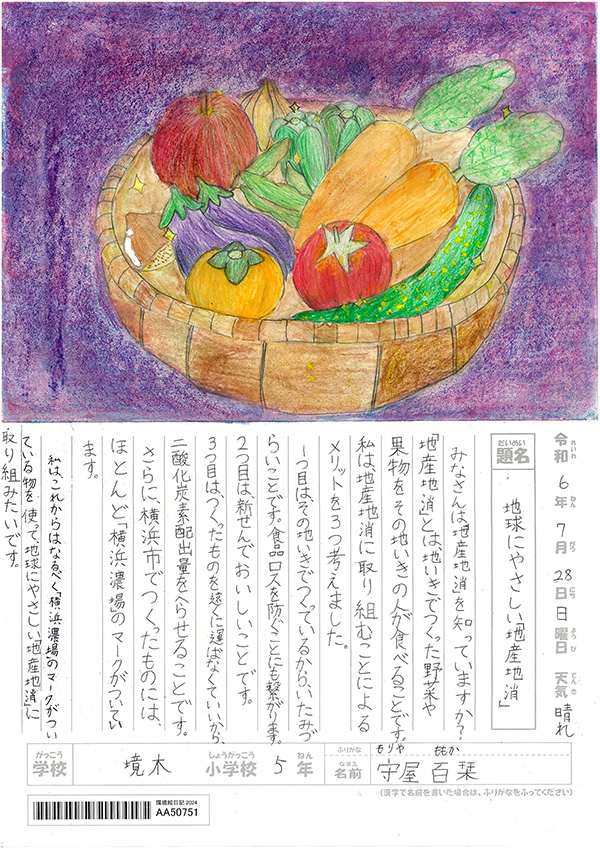 令和6年7月28日日曜日 天気 晴れ
れいわ ねん がつ にち ようび てんき
だいめい
題名
地球にやさしい「地産地消」
みなさんは、「地産地消」を知っていますか？
「地産地消」とは、地いきでつくった野菜や
果物をその地いきの人が食べることです。
私は、地産地消に取り組むことによる
メリットを3つ考えました。
1つ目は、その地いきでつくっているから、いたみづ
らいことです。食品ロスを防ぐことにも繋がります。
2つ目は、新せんでおいしいことです。
3つ目は、つくったものを遠くに運ばなくていいから、
二酸化炭素配出量をへらせることです。
さらに、横浜市でつくったものには、
ほとんど「横浜濃場」のマークがついてい
ます。
私は、これからはなるべく「横浜濃場」のマークがつい
ている物を使って、地球にやさしい「地産地消」に
取り組みたいです。
がっこう
学校
境木
しょうがっこう
小学校
5
ねん
年
ふりがな
もりや ももか
なまえ
名前
守屋 百栞
(漢字で名前を書いた場合は、ふりがなをふってください)
環境絵日記 2024
AA50751